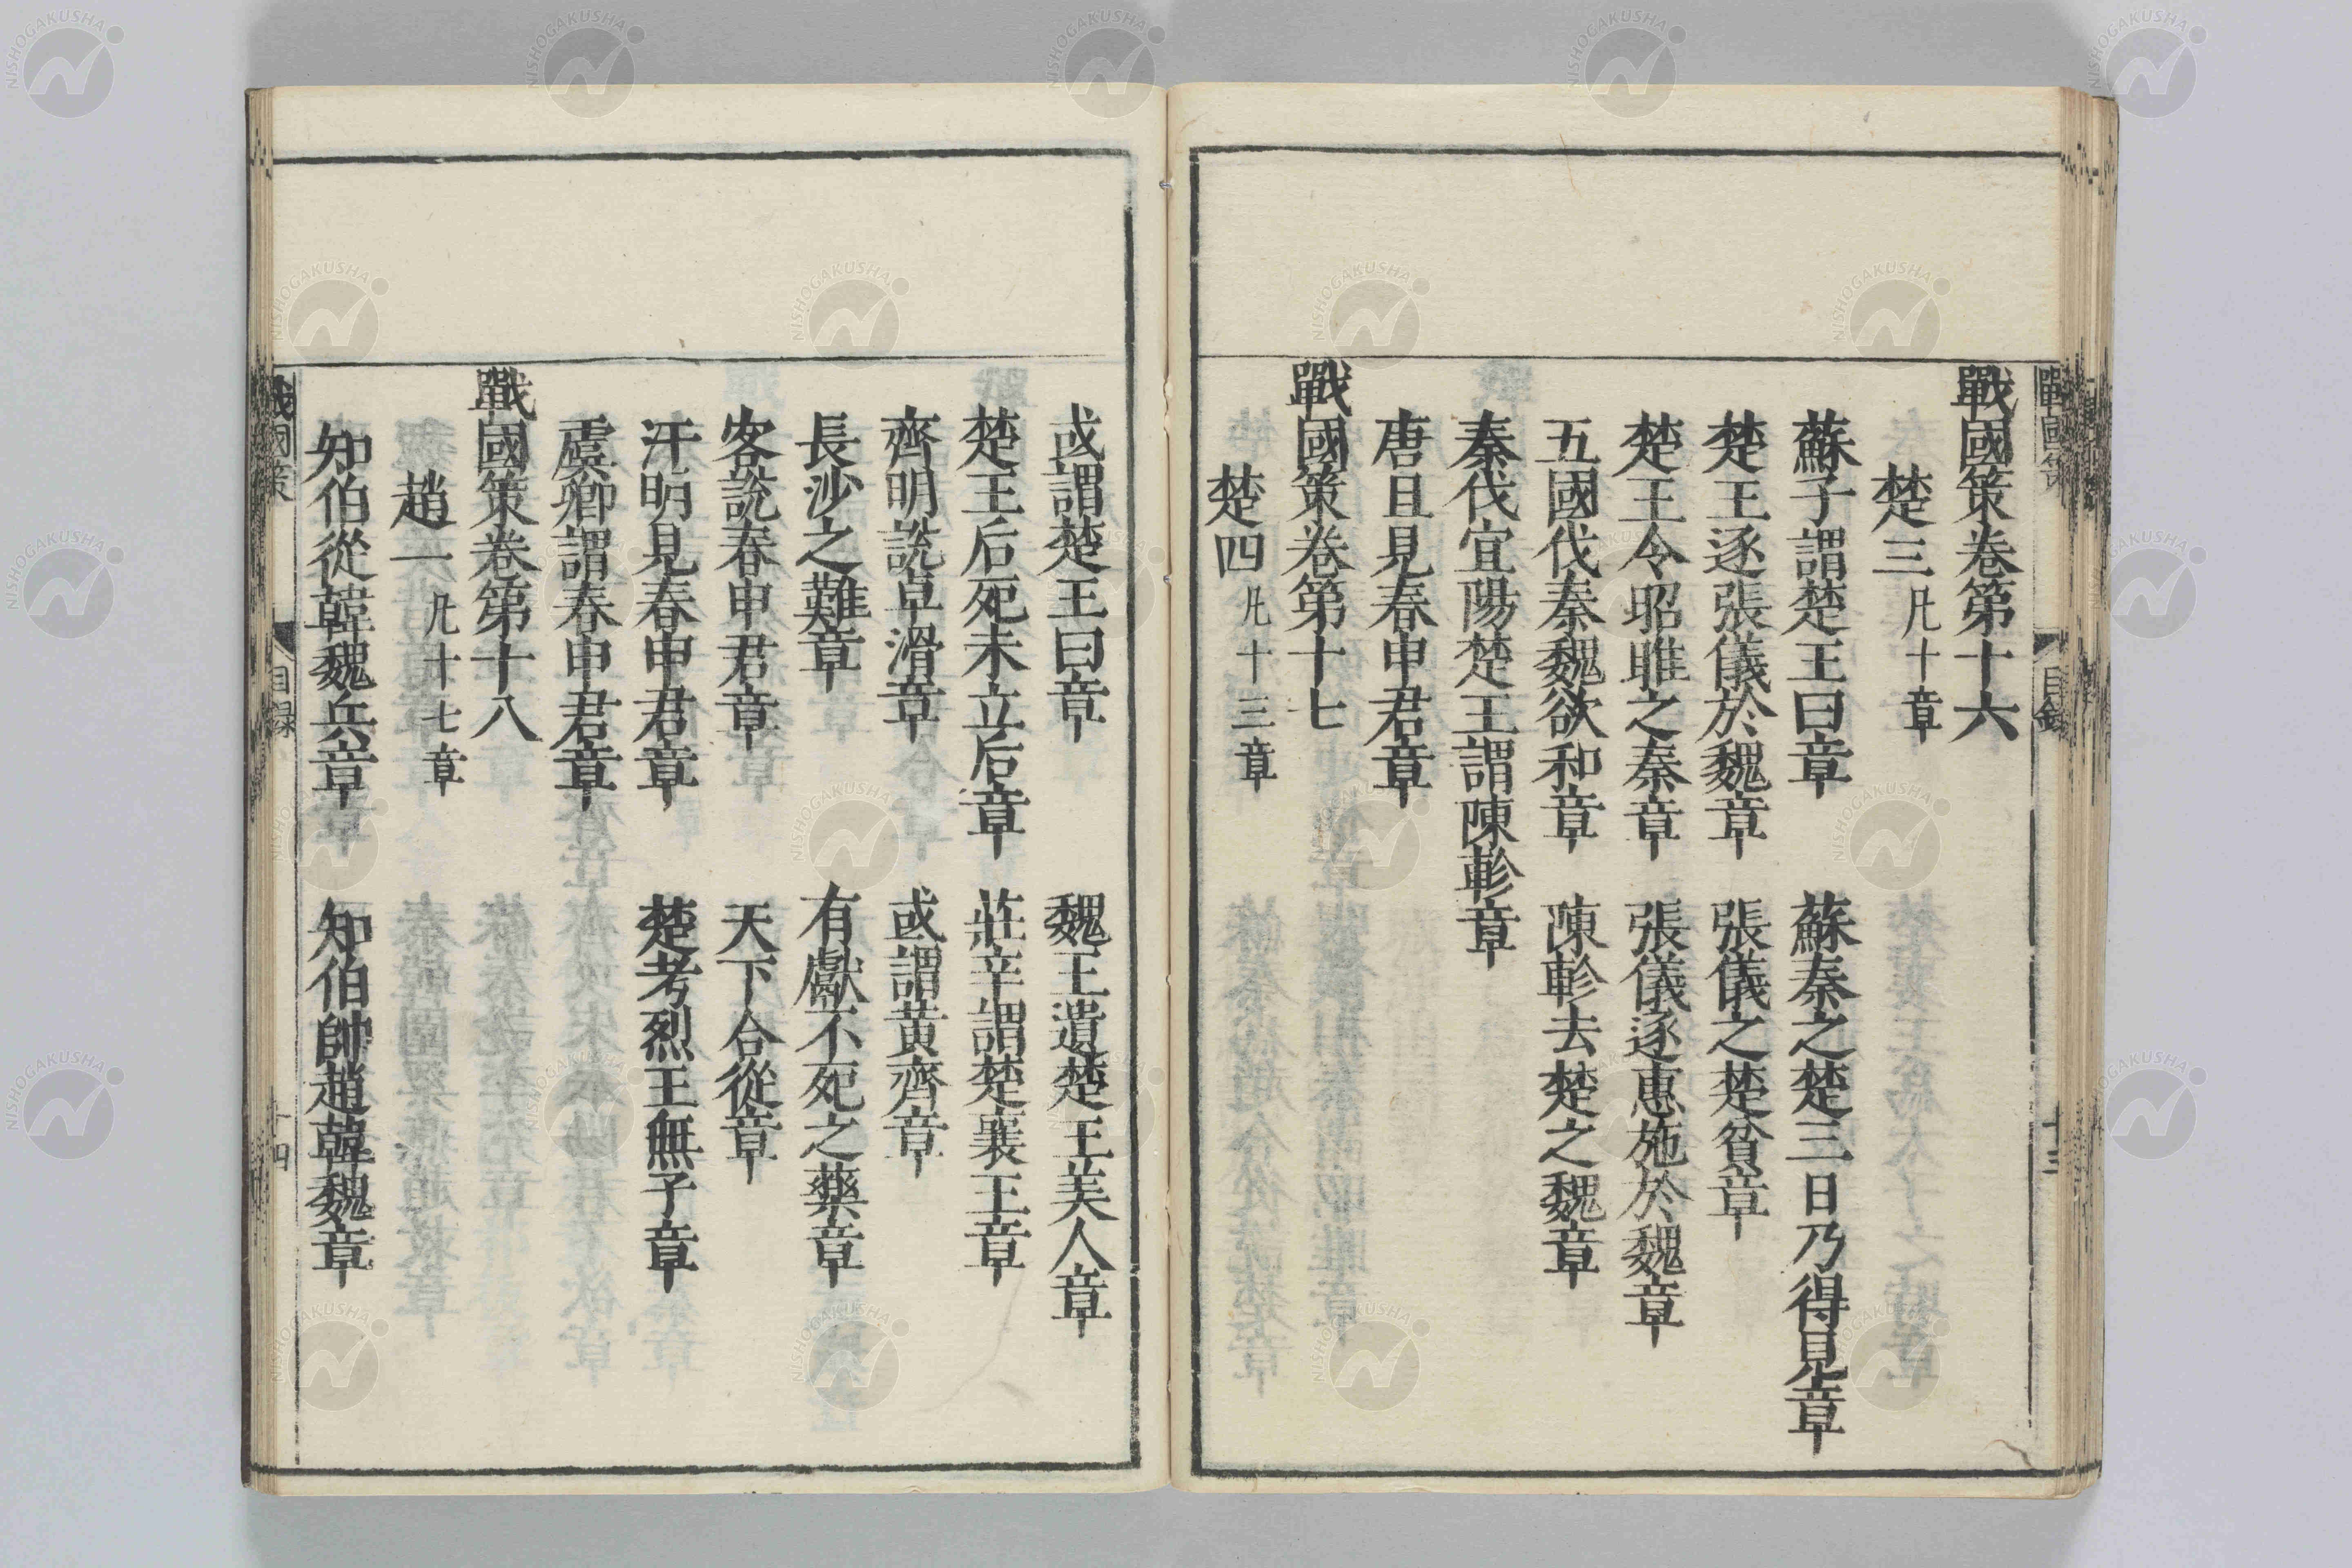 戰國策卷第十六
楚三 凡十章
蘇子謂楚王曰章 蘇秦之楚三日乃得見章
楚王逐張儀於魏章 張儀之楚貧章
楚王令昭雎之秦章 張儀逐惠施於魏章
五國伐秦魏欲和章 陳軫去楚之魏章
秦伐宜陽楚王謂陳軫章
唐且見春申君章
戰國策卷第十七
楚四 凡十三章
或謂楚王曰章 魏王遺楚王美人章
楚王后死未立后章 莊辛謂楚襄王章
齊明說卓滑章 或謂黃齊章
長沙之難章 有獻不死之藥章
客說春申君章 天下合從章
汗明見春申君章 楚考烈王無子章
虞卿謂春申君章
戰國策卷第十八
趙一 凡十七章
知伯從韓魏兵章 知伯帥趙韓魏章
戰國策 目錄 十三
戰國策 目録 十四
NISHOGAKUSHA